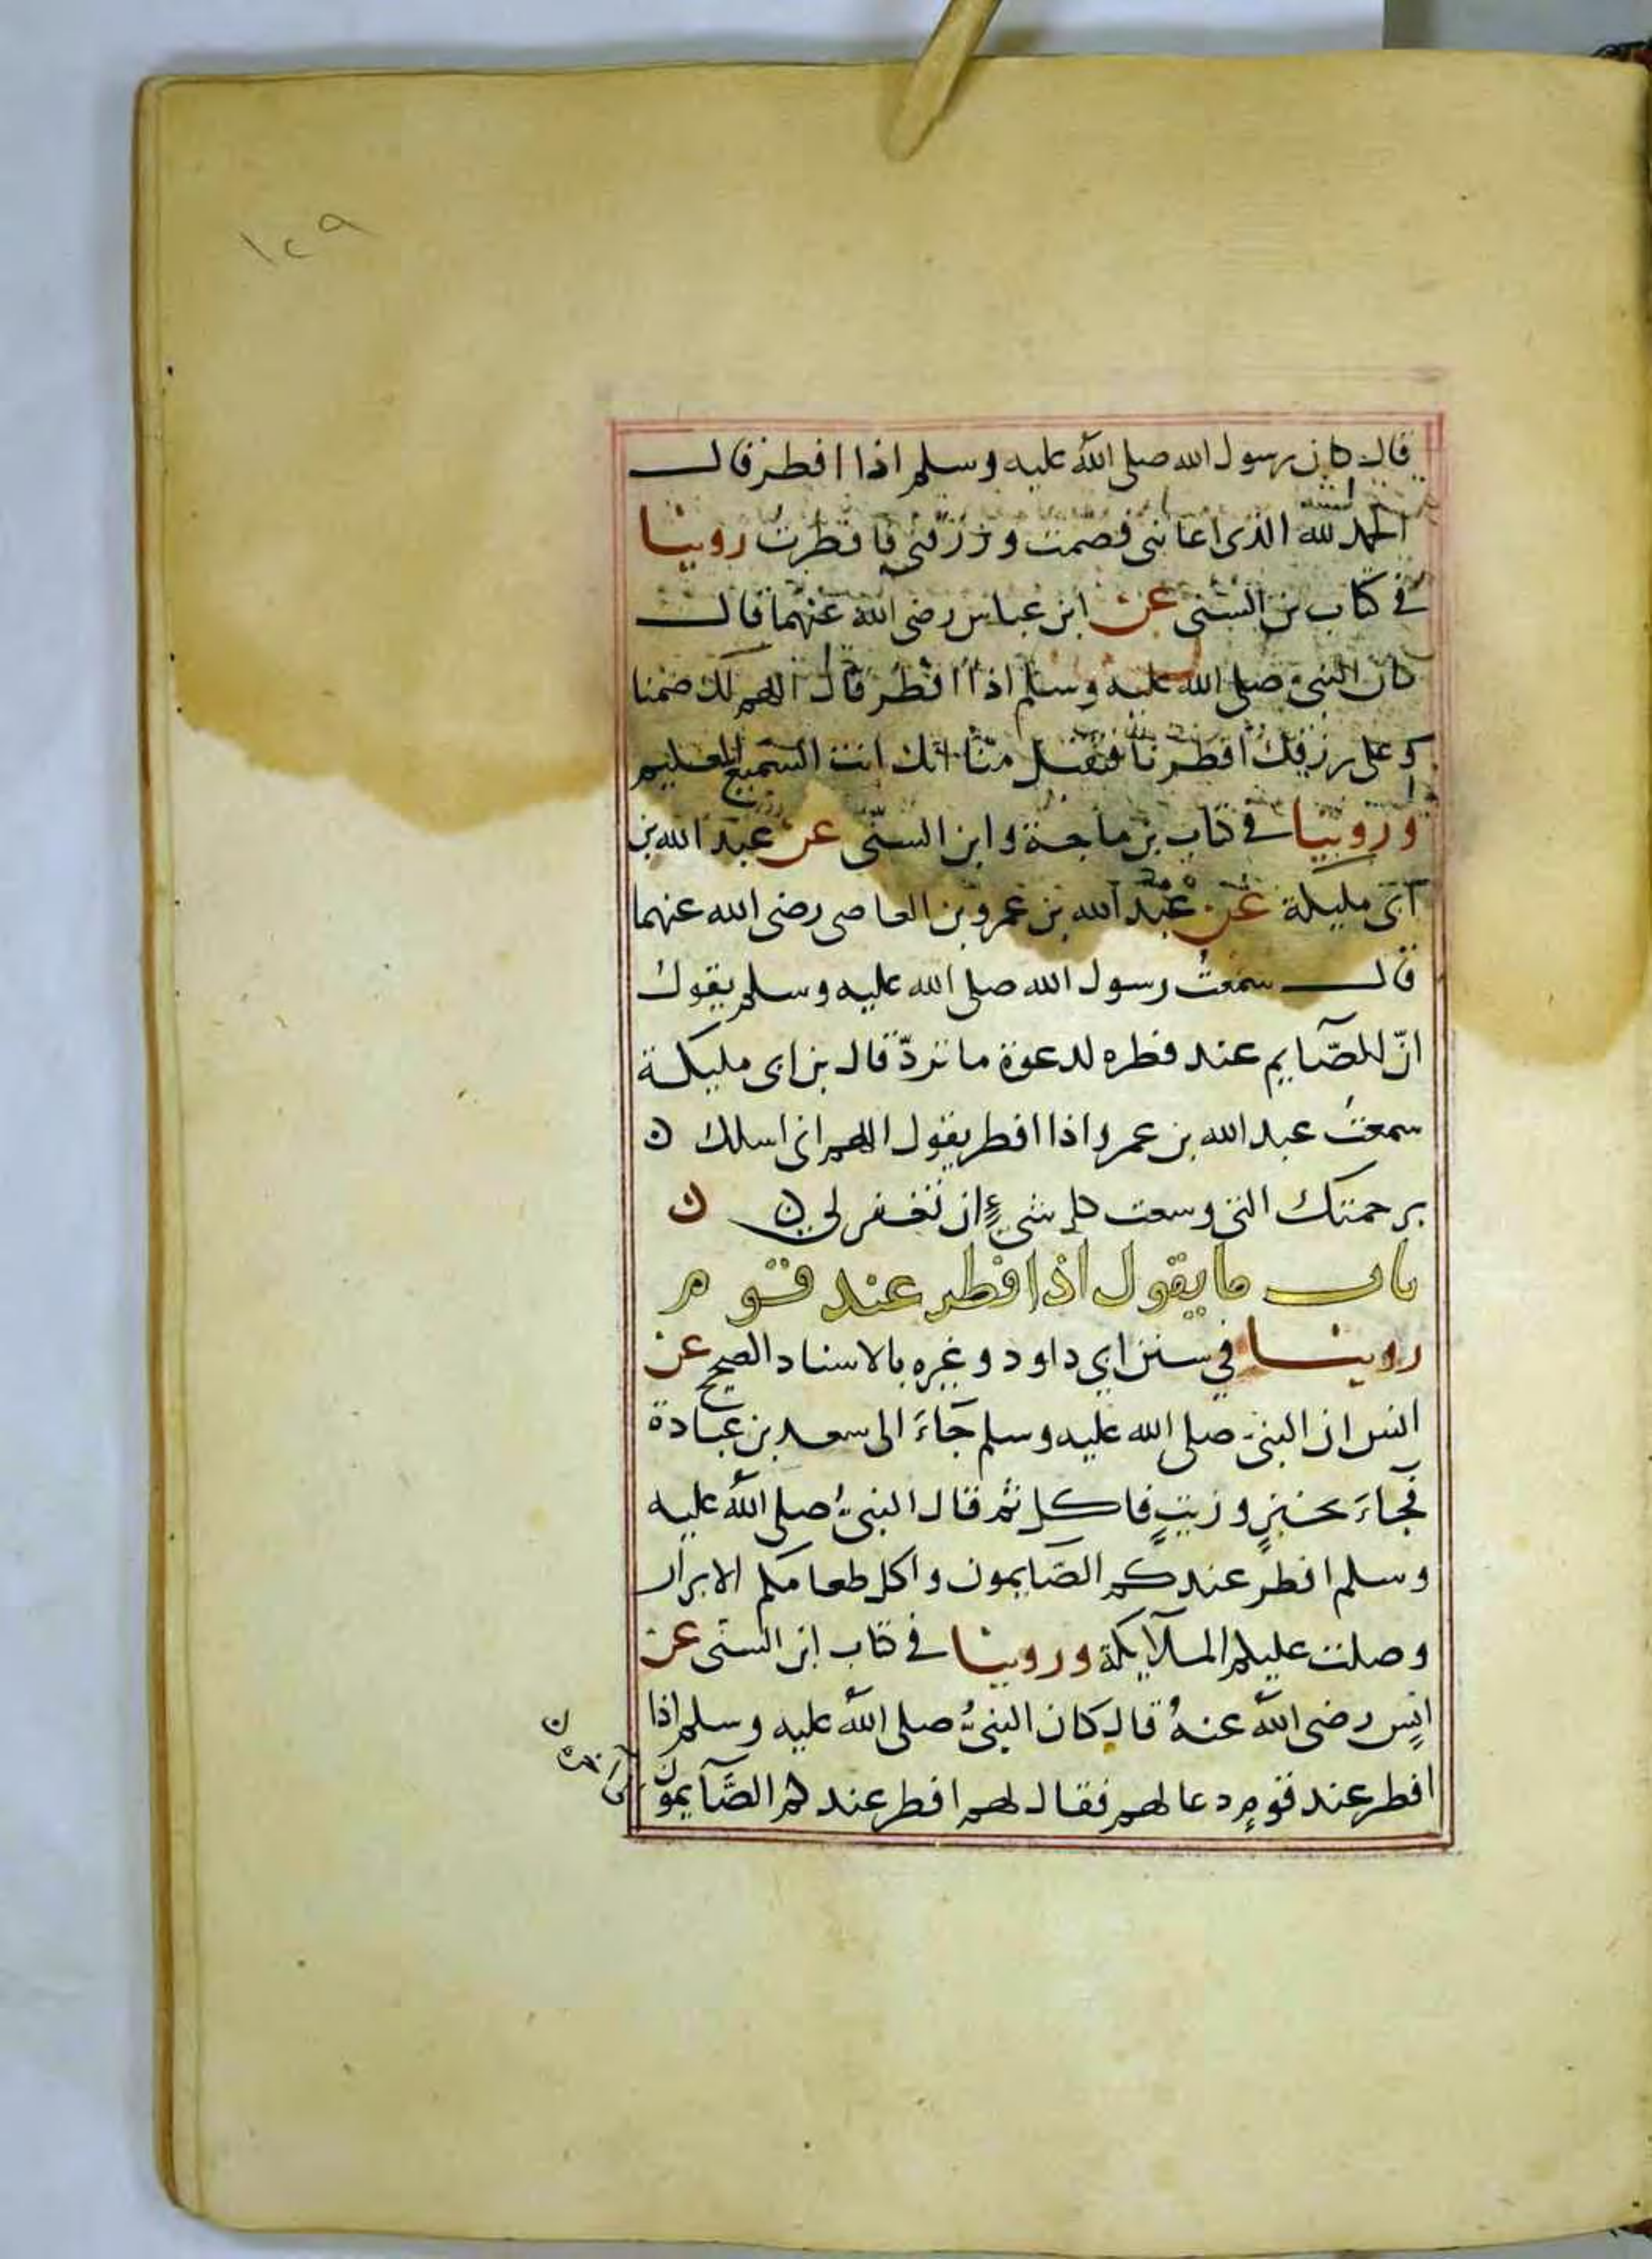 ١٢٩
قال كان رسول الله صلى الله عليه وسلم اذا افطر قال
الحمد لله الذى اعاننى فصمت ورزقنى فافطرت روينا
فى كتاب بن السنى عن ابن عباس رضى الله عنهما قال
كان النبى صلى الله عليه وسلم اذا افطر قال اللهم لك صمنا
وعلى رزقك افطرنا فتقبل منّا انك انت السميع العليم
وروينا فى كتاب بن ماجة وابن السنّى عن عبد الله بن
ابى مليكة عن عبد الله بن عمرو بن العاصى رضى الله عنهما
قال سمعتُ رسول الله صلى الله عليه وسلم يقول
انّ للصّايم عند فطره لدعوة ما تردّ قال بن ابى مليكة
سمعتُ عبد الله بن عمرو اذا افطر يقول اللهم انى اسلك ن
برحمتك التى وسعت كل شىءٍ ان تغفر لى ن ن
باب ما يقول اذا افطر عند قوم
روينا في سنن ابي داود وغيره بالاسناد الصحيح عن
انس ان النبىّ صلى الله عليه وسلم جَاءَ الى سعد بن عبادة
فجَاءَ بخبزٍ وزيتٍ فاكل ثم قال النبىُّ صلى اللهُ عليه
وسلم افطر عندكم الصَايمون واكل طعامكم الابرار
وصلت عليكم الملآيكة وروينا فى كتاب ابن السنّى عن
انسٍ رضى اللهُ عنهُ قال كان النبىُّ صلى اللهُ عليه وسلم اذا
افطر عند قومٍ دعا لهم فقال لهم افطر عندكم الصَّآيمون